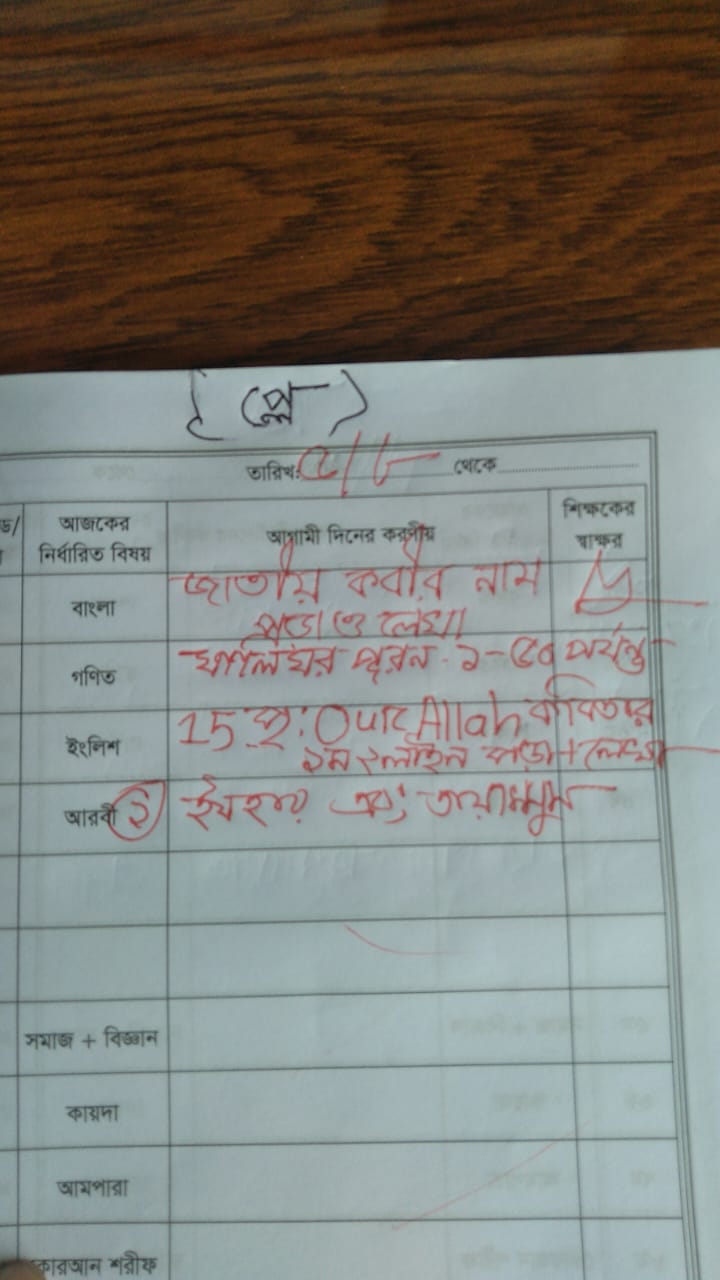 ( প্লে )
তারিখঃ ৫/৮ থেকে
আজকের নির্ধারিত বিষয়
আগামী দিনের করণীয়
শিক্ষকের স্বাক্ষর
বাংলা
জাতীয় কবীর নাম
পড়া ও লেখা
গণিত
খালিঘর পুরন ১-৫০ পর্যন্ত
ইংলিশ
15 পৃ: Our Allah কবিতার
১ম ২লাইন পড়া + লেখা
আরবী
২ এবং তায়াম্মুম
সমাজ + বিজ্ঞান
কায়দা
আমপারা
কোরআন শরীফ